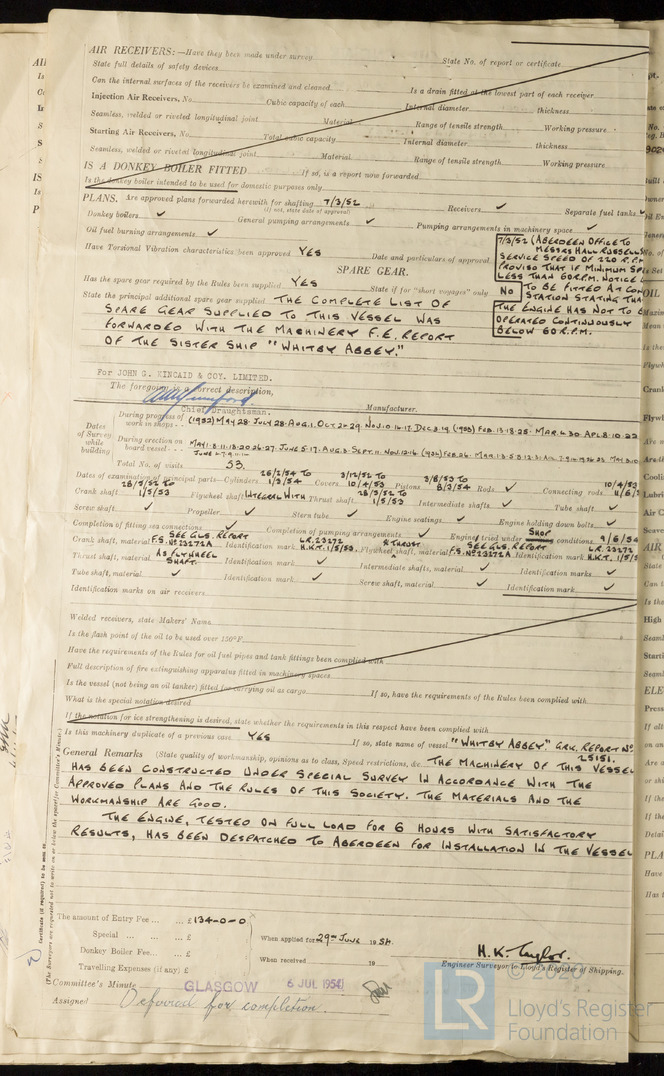 AIR RECEIVERS:—Have they been made under survey State No. of report or certificate
State full details of safety devices
Can the internal surfaces of the receivers be examined and cleaned Is a drain fitted at the lowest part of each receiver
Injection Air Receivers, No. Cubic capacity of each Internal diameter thickness
Seamless, welded or riveted longitudinal joint Material Range of tensile strength Working pressure
Starting Air Receivers, No. Total cubic capacity Internal diameter thickness
Seamless, welded or riveted longitudinal joint Material Range of tensile strength Working pressure
IS A DONKEY BOILER FITTED If so, is a report now forwarded
Is the donkey boiler intended to be used for domestic purposes only
PLANS. Are approved plans forwarded herewith for shafting 7/3/52 Receivers ✓ Separate fuel tanks ✓
(If not, state date of approval)
Donkey boilers ✓ General pumping arrangements ✓ Pumping arrangements in machinery space ✓
Oil fuel burning arrangements ✓
Have Torsional Vibration characteristics been approved YES Date and particulars of approval
7/3/52 (ABERDEEN OFFICE TO
MESSRS HALL RUSSELL
SERVICE SPEED OF 220 R.P.M
PROVISO THAT IF MINIMUM
LESS THAN 60 R.P.M. NOTICE
No TO BE FITTED AT
STATION STATING THA
THE ENGINE HAS NOT TO B
OPERATED CONTINUOUSLY
BELOW 60 R.P.M.
SPARE GEAR.
Has the spare gear required by the Rules been supplied YES State if for "short voyages" only
State the principal additional spare gear supplied THE COMPLETE LIST OF
SPARE GEAR SUPPLIED TO THIS VESSEL WAS
FORWARDED WITH THE MACHINERY F.E. REPORT
OF THE SISTER SHIP "WHITBY ABBEY."
For JOHN G. KINCAID & COY. LIMITED.
The foregoing is a correct description,
Chief Draughtsman. Manufacturer.
Dates of Survey while building
During progress of work in shops - - (1952) MAY 28. JULY 28. AUG. 1. OCT 21. 29. NOV. 10. 14. 17. DEC 3. 19. (1953) FEB. 13. 18. 25. MAR. 4. 30. APL. 8. 10. 22
During erection on board vessel - - -
Total No. of visits 53.
Dates of examination of principal parts—Cylinders 26/2/54 TO 1/3/54 Covers 3/12/52 TO 10/4/53 Pistons 3/8/53 TO 8/3/54 Rods ✓ Connecting rods 10/4/53
Crank shaft 28/5/52 TO 1/5/53 Flywheel shaft INTEGRAL WITH Thrust shaft 28/5/52 TO 1/5/53 Intermediate shafts ✓ Tube shaft ✓
Screw shaft ✓ Propeller ✓ Stern tube ✓ Engine seatings ✓ Engine holding down bolts ✓
Completion of fitting sea connections ✓ Completion of pumping arrangements ✓ Engines tried under SHOP conditions 9/6/54
Crank shaft, material SEE GLS. REPORT F.S. No 23272A Identification mark LR. 23272 H.K.T. 1/5/53. Flywheel shaft, material & THRUST SEE GLS. REPORT F.S. No 23272A Identification mark LR. 23272 H.K.T. 1/5/5
Thrust shaft, material AS FLYWHEEL SHAFT. Identification mark ✓ Intermediate shafts, material ✓ Identification marks ✓
Tube shaft, material ✓ Identification mark ✓ Screw shaft, material ✓ Identification mark ✓
Identification marks on air receivers
Welded receivers, state Makers' Name
Is the flash point of the oil to be used over 150°F.
Have the requirements of the Rules for oil fuel pipes and tank fittings been complied with
Full description of fire extinguishing apparatus fitted in machinery spaces
Is the vessel (not being an oil tanker) fitted for carrying oil as cargo If so, have the requirements of the Rules been complied with
What is the special notation desired
If the notation for ice strengthening is desired, state whether the requirements in this respect have been complied with
Is this machinery duplicate of a previous case YES If so, state name of vessel "WHITBY ABBEY." GRK. REPORT No 25151.
General Remarks (State quality of workmanship, opinions as to class, Speed restrictions, &c. THE MACHINERY OF THIS VESSEL
HAS BEEN CONSTRUCTED UNDER SPECIAL SURVEY IN ACCORDANCE WITH THE
APPROVED PLANS AND THE RULES OF THIS SOCIETY. THE MATERIALS AND THE
WORKMANSHIP ARE GOOD.
THE ENGINE, TESTED ON FULL LOAD FOR 6 HOURS WITH SATISFACTORY
RESULTS, HAS BEEN DESPATCHED TO ABERDEEN FOR INSTALLATION IN THE VESSEL
Certificate (if required) to be sent to
(The Surveyors are requested not to write on or below the space for Committee's Minute.)
The amount of Entry Fee ... £ 134-0-0
Special ... £ When applied for 29th JUNE 1954.
Donkey Boiler Fee ... £ When received 19
Travelling Expenses (if any) £
H. K. Taylor.
Engineer Surveyor to Lloyd's Register of Shipping.
Committee's Minute GLASGOW 6 JUL 1954
Assigned Deferred for completion.
© 2020
LR Lloyd's Register
Foundation